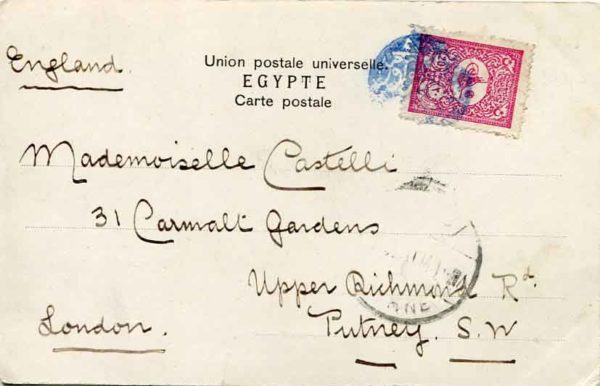 England.
Union postale universelle.
EGYPTE
Carte postale
Mademoiselle Castelli
31 Carmalt Gardens
Upper Richmond Rd.
Putney. S.W
London.